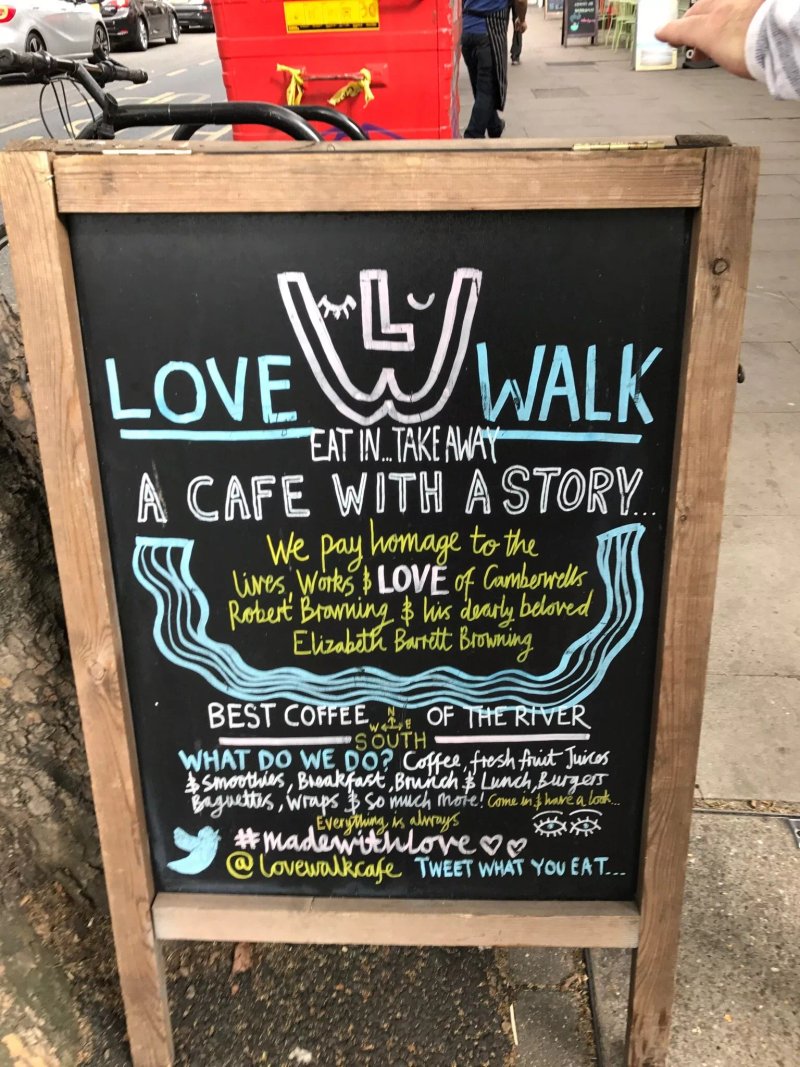 LOVE WL WALK
EAT IN...TAKE AWAY
A CAFE WITH A STORY...
We pay homage to the
lives, Works & LOVE of Camberwells
Robert Browning & his dearly beloved
Elizabeth Barrett Browning
BEST COFFEE N W E SOUTH OF THE RIVER
WHAT DO WE DO? Coffee, fresh fruit Juices
& Smoothies, Breakfast, Brunch & Lunch, Burgers
Baguettes, Wraps & So much more! Come in & have a look...
Everything is always
#madewithlove
@lovewalkcafe TWEET WHAT YOU EAT...